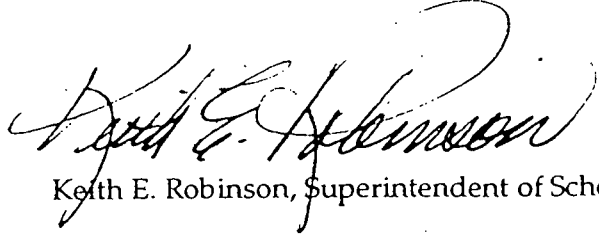 Keith E. Robinson
Keith E. Robinson, Superintendent of Scho